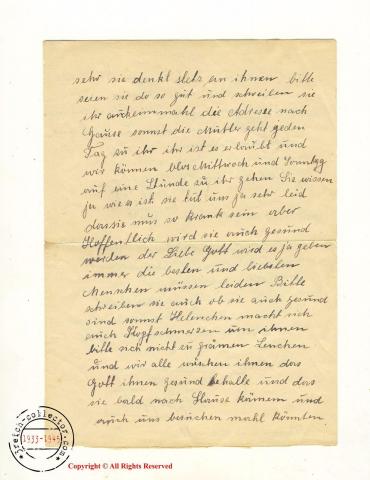 sehr sie denkt stets an ihnen bitte
seien sie do so gut und schreiben sie
ihr auch einmahl die Adresse nach
Hause sonst die Mutter geht geden
Tag zu ihr ihr ist es erlaubt und
wir können blos Mittwoch und Sonntag
auf eine Stunde zu ihr gehen Sie wissen
ja wie es ist sie tut uns ja sehr leid
das sie mus so krank sein aber
Hoffentlich wird sie auch gesund
werden der Liebe Gott wird es ja geben
immer die besten und liebsten
Menschen müssen leiden Bitte
schreiben sie auch ob sie auch gesund
sind sonst Helenchen macht sich
auch Kopfschmerzen um ihnen
bitte sich nicht zu grämen Lenchen
und wir alle wüschen ihnen das
Gott ihnen gesund behalte und das
sie bald nach Hause kämem und
auch uns besuchen mahl könnten
3reich-collector.com
1933-1945
Copyright © All Rights Reserved